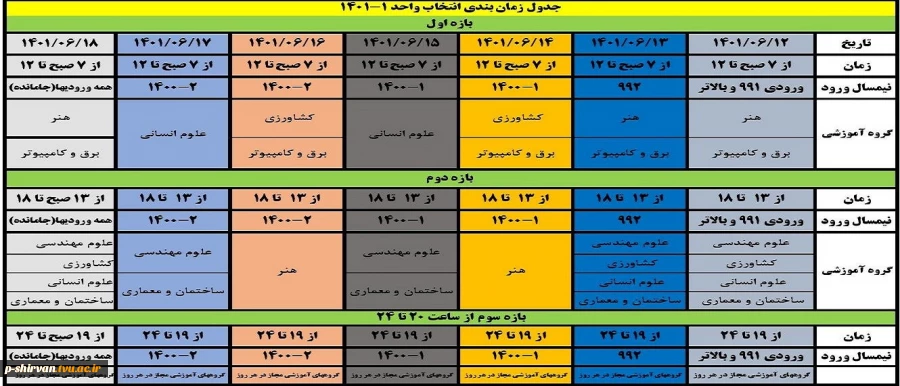 جدول زمان بندی انتخاب واحد ۱-۱۴۰۱
بازه اول
تاریخ ۱۴۰۱/۰۶/۱۲ ۱۴۰۱/۰۶/۱۳ ۱۴۰۱/۰۶/۱۴ ۱۴۰۱/۰۶/۱۵ ۱۴۰۱/۰۶/۱۶ ۱۴۰۱/۰۶/۱۷ ۱۴۰۱/۰۶/۱۸
زمان از ۷ صبح تا ۱۲ از ۷ صبح تا ۱۲ از ۷ صبح تا ۱۲ از ۷ صبح تا ۱۲ از ۷ صبح تا ۱۲ از ۷ صبح تا ۱۲ از ۷ صبح تا ۱۲
نیمسال ورود ورودی ۹۹۱ و بالاتر ۹۹۲ ۱-۱۴۰۰ ۱-۱۴۰۰ ۲-۱۴۰۰ ۲-۱۴۰۰ همه ورودیها(جامانده)
گروه آموزشی هنر هنر کشاورزی علوم انسانی کشاورزی علوم انسانی هنر
برق و کامپیوتر برق و کامپیوتر برق و کامپیوتر برق و کامپیوتر برق و کامپیوتر
بازه دوم
زمان از ۱۳ تا ۱۸ از ۱۳ تا ۱۸ از ۱۳ تا ۱۸ از ۱۳ تا ۱۸ از ۱۳ تا ۱۸ از ۱۳ تا ۱۸ از ۱۳ صبح تا ۱۸
نیمسال ورود ورودی ۹۹۱ و بالاتر ۹۹۲ ۱-۱۴۰۰ ۱-۱۴۰۰ ۲-۱۴۰۰ ۲-۱۴۰۰ همه ورودیها(جامانده)
گروه آموزشی علوم مهندسی علوم مهندسی هنر علوم مهندسی هنر علوم مهندسی علوم مهندسی
کشاورزی کشاورزی کشاورزی
علوم انسانی علوم انسانی علوم انسانی
ساختمان و معماری ساختمان و معماری ساختمان و معماری ساختمان و معماری ساختمان و معماری
بازه سوم از ساعت ۲۰ تا ۲۴
زمان از ۱۹ تا ۲۴ از ۱۹ تا ۲۴ از ۱۹ تا ۲۴ از ۱۹ تا ۲۴ از ۱۹ تا ۲۴ از ۱۹ تا ۲۴ از ۱۹ صبح تا ۲۴
نیمسال ورود ورودی ۹۹۱ و بالاتر ۹۹۲ ۱-۱۴۰۰ ۱-۱۴۰۰ ۲-۱۴۰۰ ۲-۱۴۰۰ همه ورودیها(جامانده)
گروههای آموزشی مجاز در هر روز گروههای آموزشی مجاز در هر روز گروههای آموزشی مجاز در هر روز گروههای آموزشی مجاز در هر روز گروههای آموزشی مجاز در هر روز گروههای آموزشی مجاز در هر روز گروههای آموزشی مجاز در هر روز
p-shirvan.tvu.ac.ir